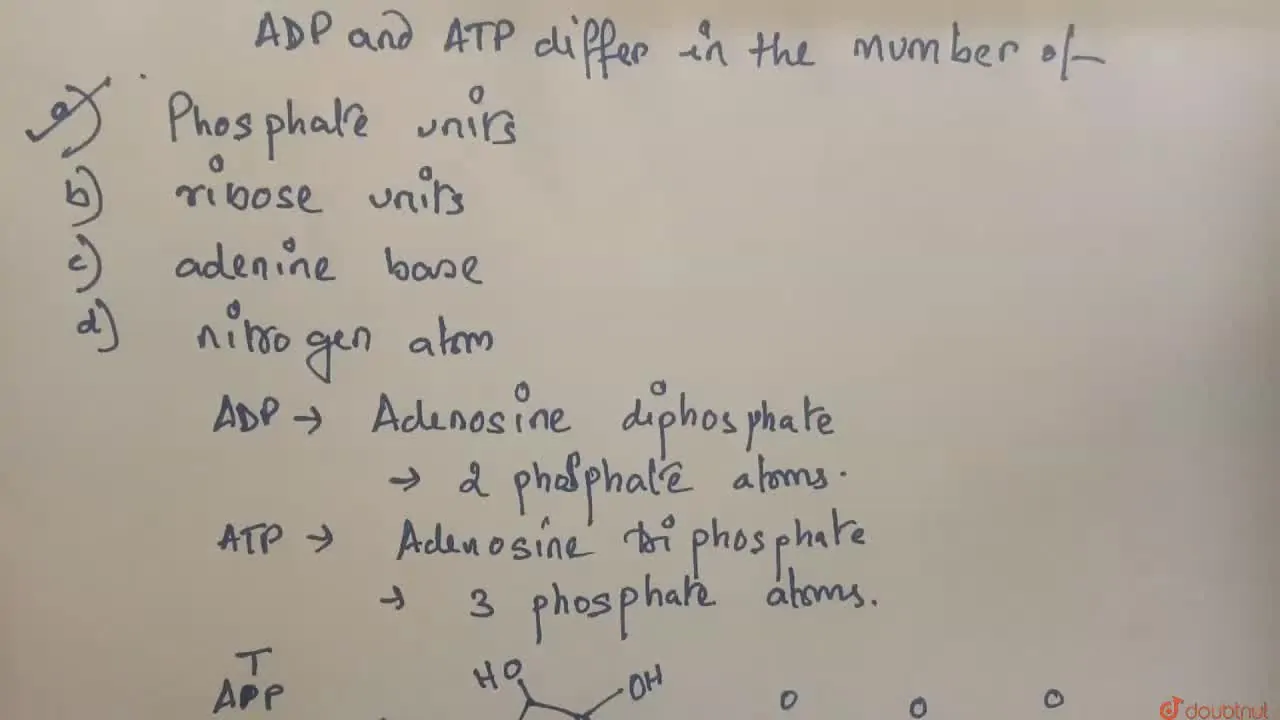 ADP and ATP differ in the number of-
a) Phosphate units
b) ribose units
c) adenine base
d) nitrogen atom
ADP → Adenosine diphosphate
→ 2 phosphate atoms.
ATP → Adenosine triphosphate
→ 3 phosphate atoms.
T
APP
HO OH
O O O
doubtnut